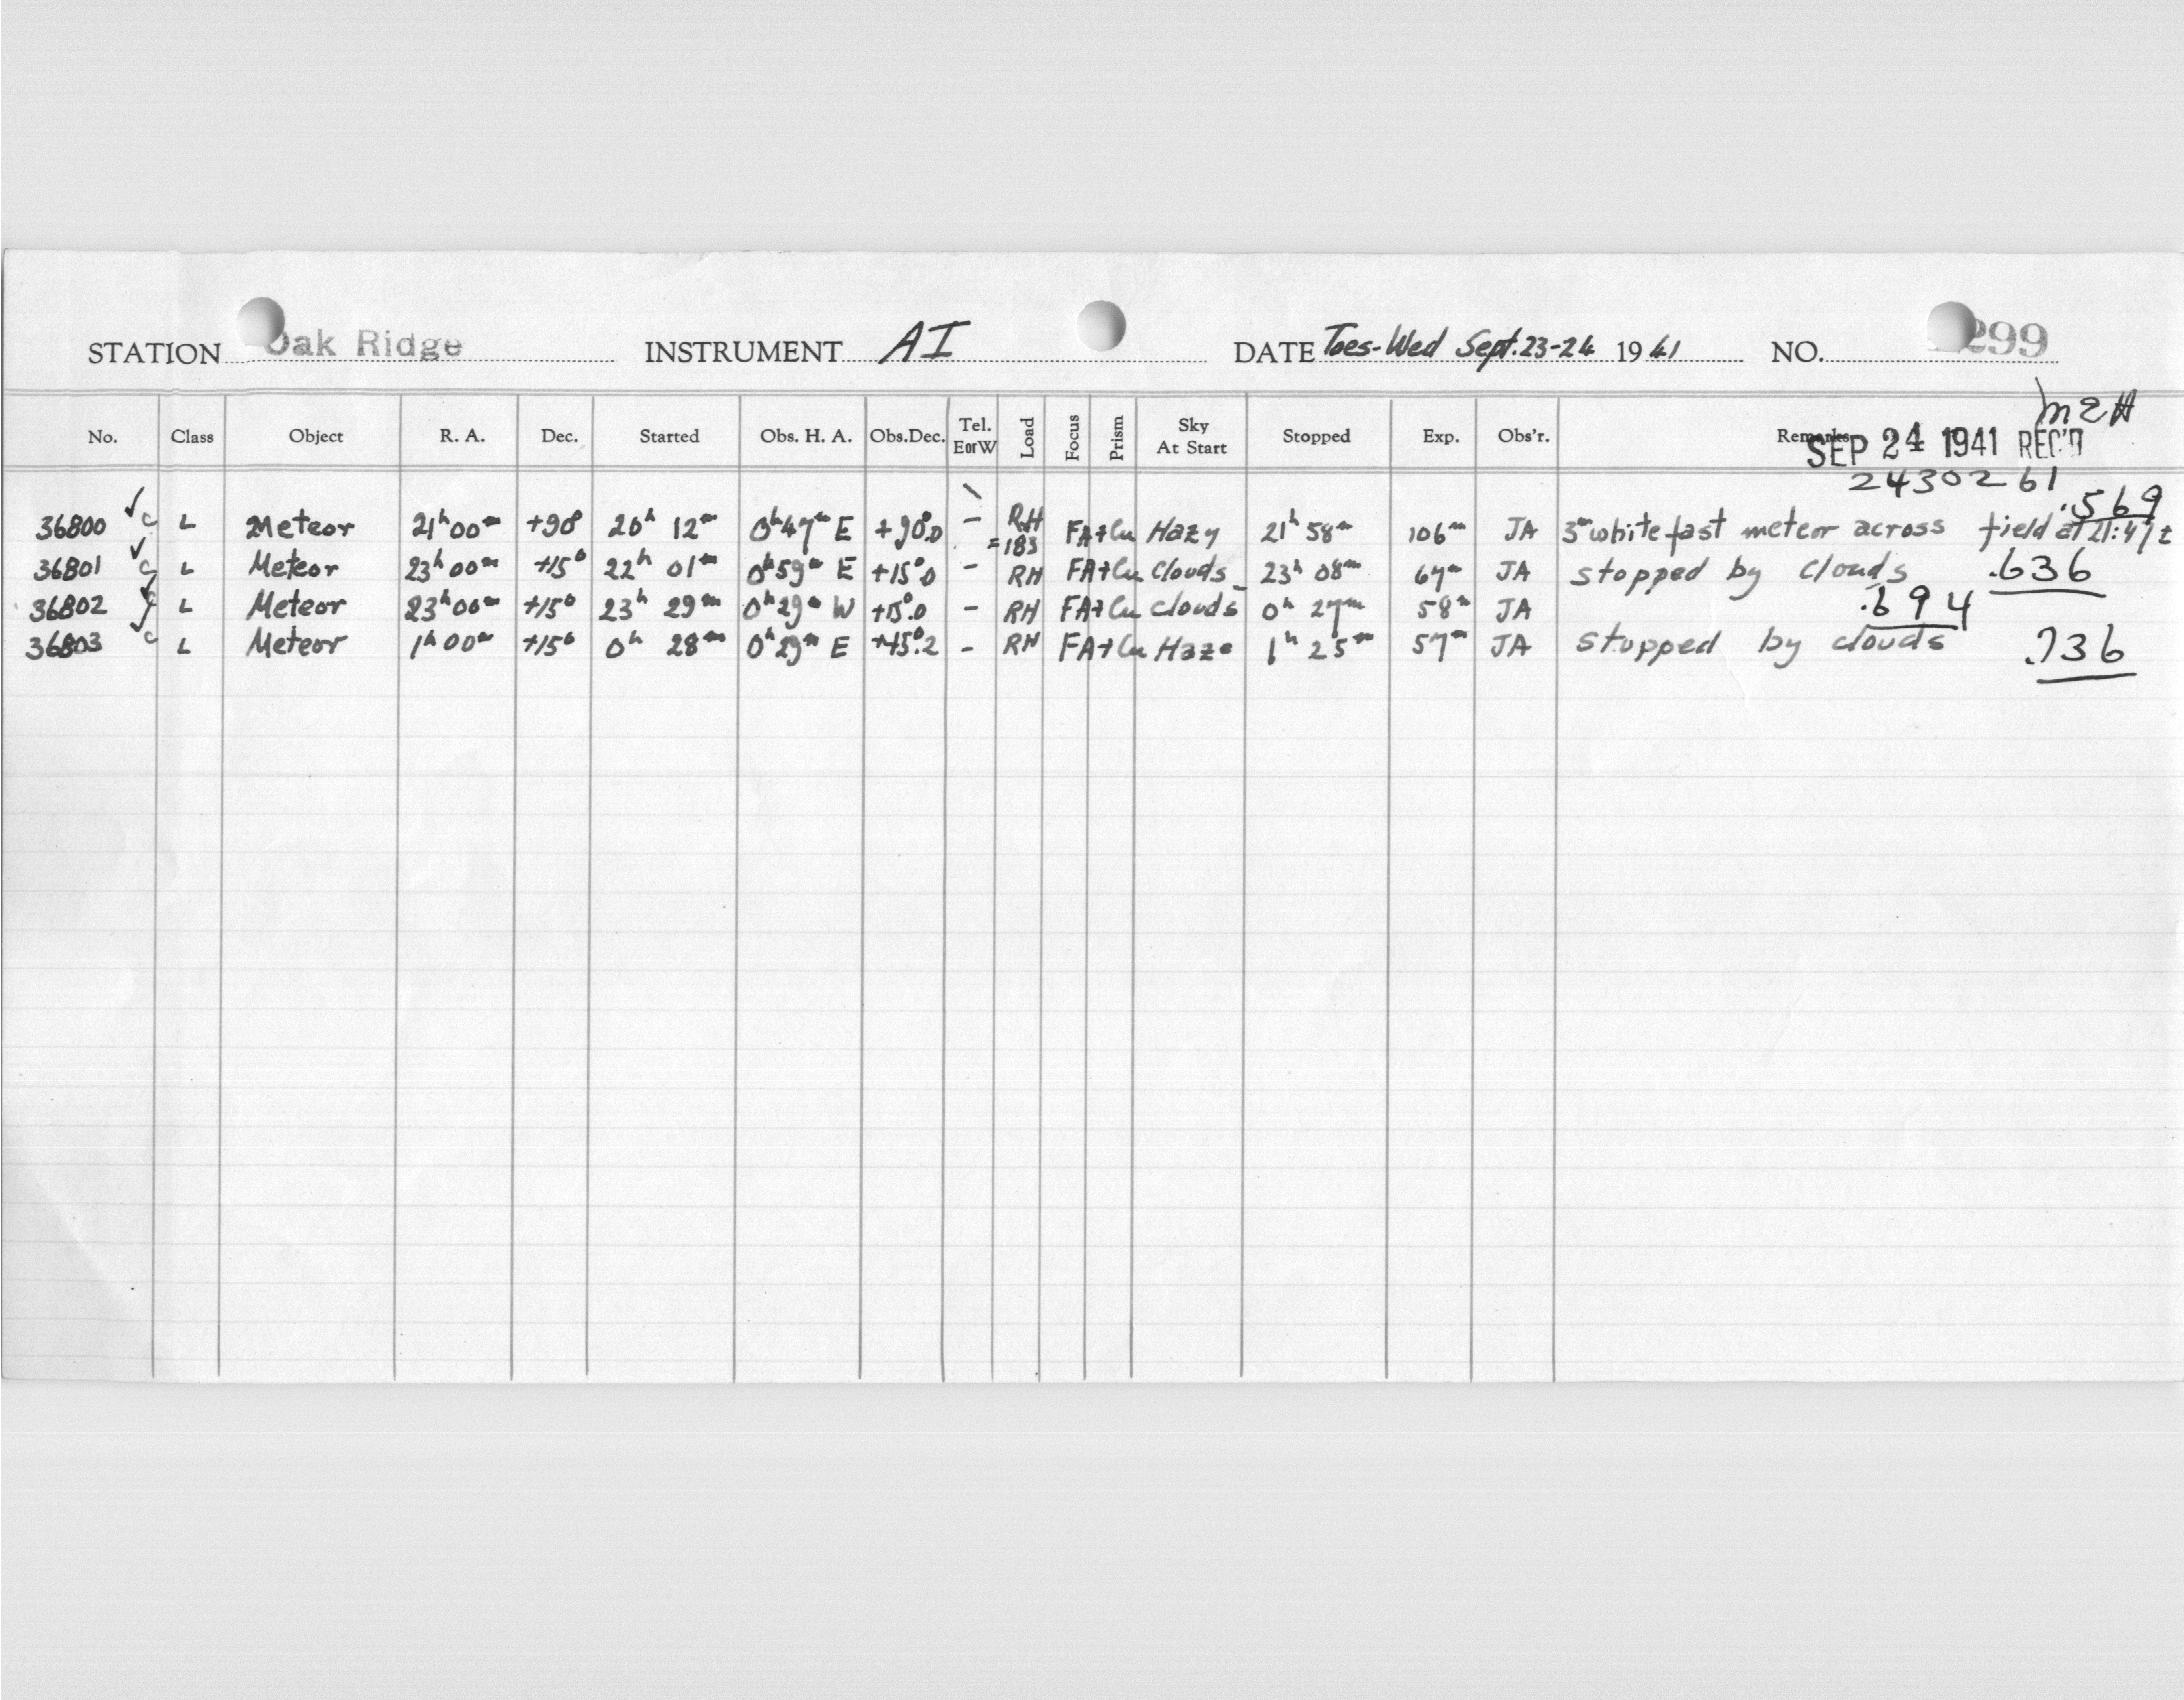 STATION Oak Ridge INSTRUMENT AI DATE Tues-Wed Sept. 23-24 1941 NO. 299
MZH
No. Class Object R. A. Dec. Started Obs. H. A. Obs.Dec. Tel. EorW Load Focus Prism Sky At Start Stopped Exp. Obs'r. Remarks
SEP 24 1941 REC'D
2430261
.569
36800 ✓c L Meteor 21h 00m +90° 20h 12m 0h 47m E +90°.0 - RH =183 FA+Cu Hazy 21h 58m 106m JA 3m white fast meteor across field at 21:47±
36801 ✓c L Meteor 23h 00m +15° 22h 01m 0h 59m E +15°.0 - RH FA+Cu clouds 23h 08m 67m JA stopped by clouds .636
36802 ✓c L Meteor 23h 00m +15° 23h 29m 0h 29m W +15°.0 - RH FA+Cu clouds 0h 27m 58m JA .694
36803 ✓c L Meteor 1h 00m +15° 0h 28m 0h 29m E +15°.2 - RH FA+Cu Haze 1h 25m 57m JA stopped by clouds .736